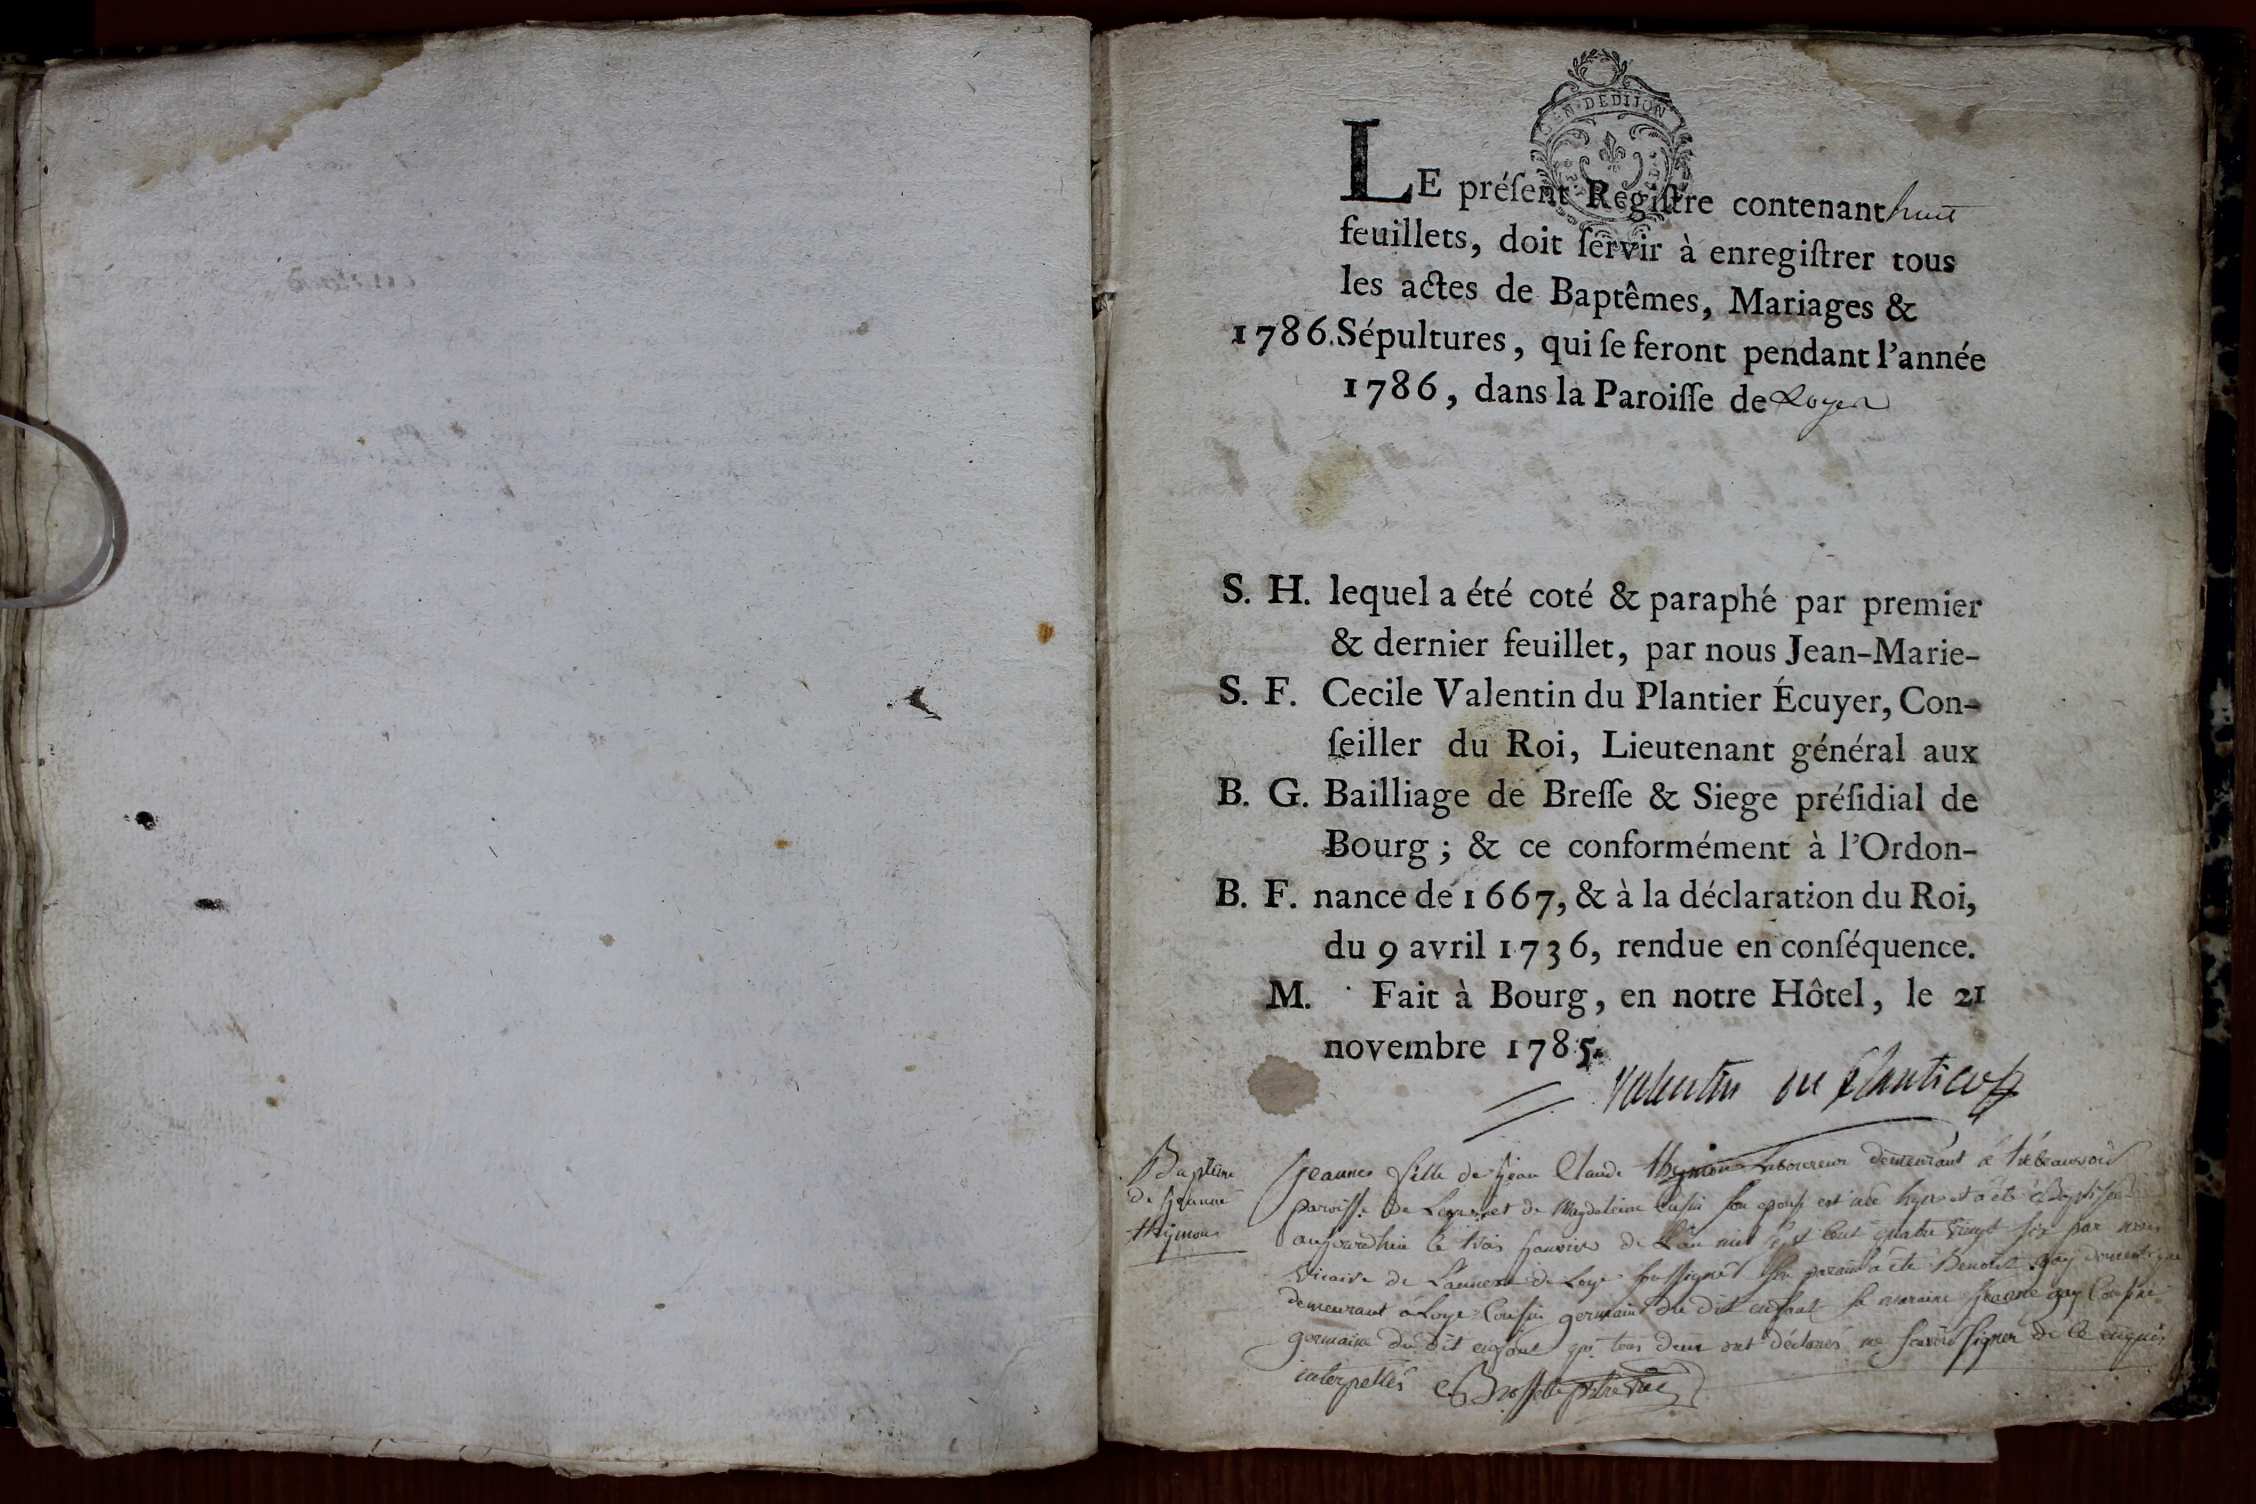 GEN · DEDIJON
LE préſent Regiſtre contenant huit
feuillets, doit ſervir à enregiſtrer tous
les actes de Baptêmes, Mariages &
1786. Sépultures, qui ſe feront pendant l'année
1786, dans la Paroiſſe de Loyes
S. H. lequel a été coté & paraphé par premier
& dernier feuillet, par nous Jean-Marie-
S. F. Cecile Valentin du Plantier Écuyer, Con-
ſeiller du Roi, Lieutenant général aux
B. G. Bailliage de Breſſe & Siege préſidial de
Bourg ; & ce conformément à l'Ordon-
B. F. nance de 1667, & à la déclaration du Roi,
du 9 avril 1736, rendue en conſéquence.
M. Fait à Bourg, en notre Hôtel, le 21
novembre 1785.
Valentin du Plantier
Baptême
de Jeanne
thymon
Jeanne fille de Jean Claude thymon Laboureur demeurant à
paroisse de et de Magdeleine son epouse est née hyer et a été Baptisée
aujourdhui le trois Janvier de L'an mil sept cent quatre vingt six par nous
vicaire de L'annexe de Loye soussigné Son parain a été Benoit gay domestique
demeurant à Loye Cousin germain du dit enfant sa maraine Jeanne gay Cousine
germaine du dit enfant qui tous deux ont déclarés ne scavoir signer de ce enquis
interpellés Brossette ptre vic